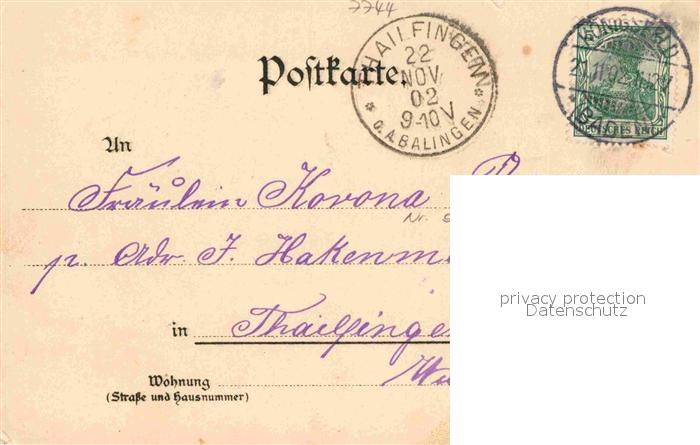 7744
Postkarte.
THAILFINGEN
22
NOV
02
9-10 V
O.A. BALINGEN
DEUTSCHES REICH
An
Fräulein Korona
Nr.
p. Adr. J. Hakenm
in Thailfinge
Wohnung
(Straße und Hausnummer)
privacy protection
Datenschutz